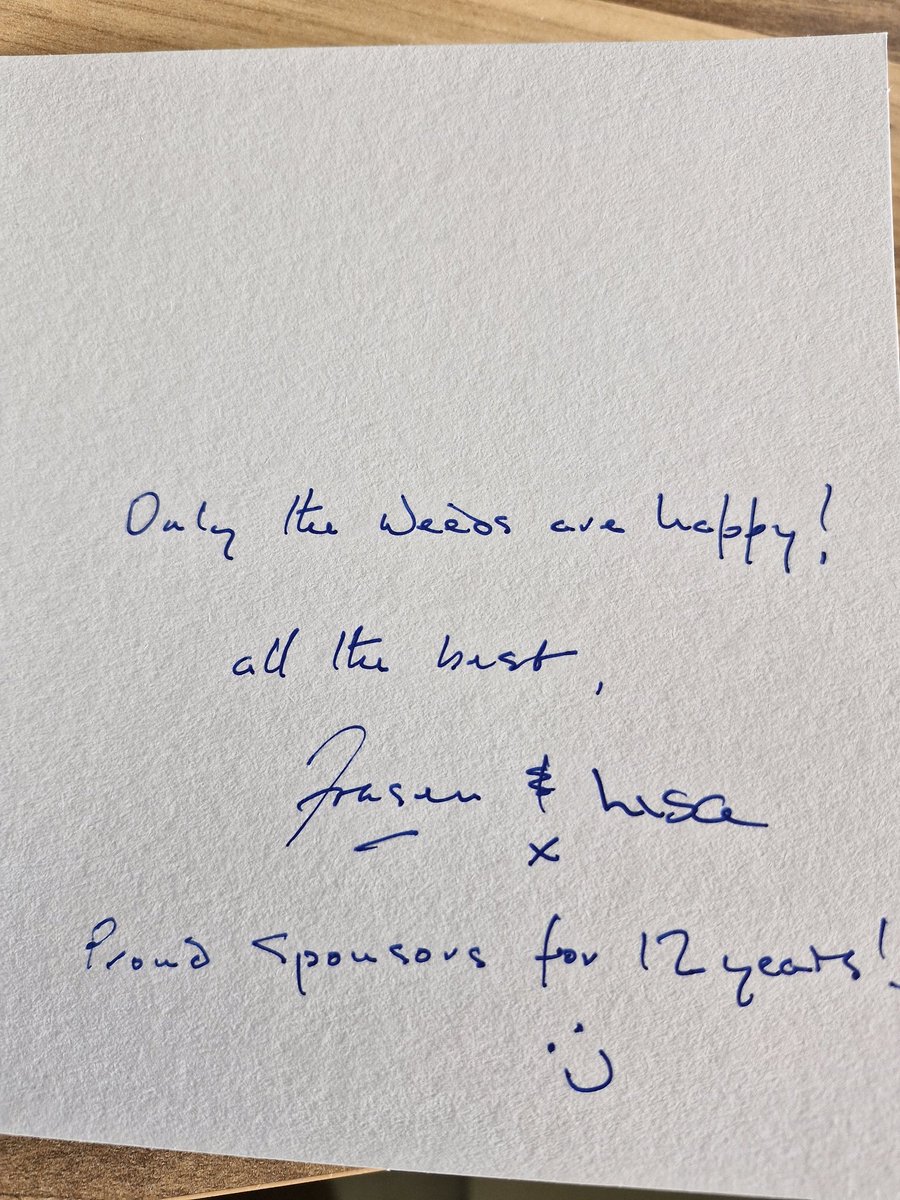 Only the weeds are happy!
all the best,
Fraser & Lisa
x
Proud Sponsors for 12 years!